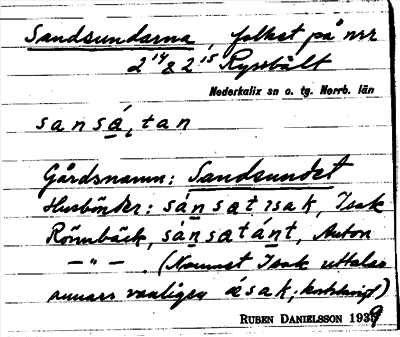 Sandsundarna, folket på nrr
2¹⁴ & 2¹⁵ Ryssbält
Nederkalix sn o. tg. Norrb. län
sansá, tan
Gårdsnamn: Sandsundet
Husbönder: sánsat ɿsak, Isak
Rönnbäck, sansatánt, Anton
— " — . (Namnet Isak uttalas
annars vanligen ísak;
RUBEN DANIELSSON 1939